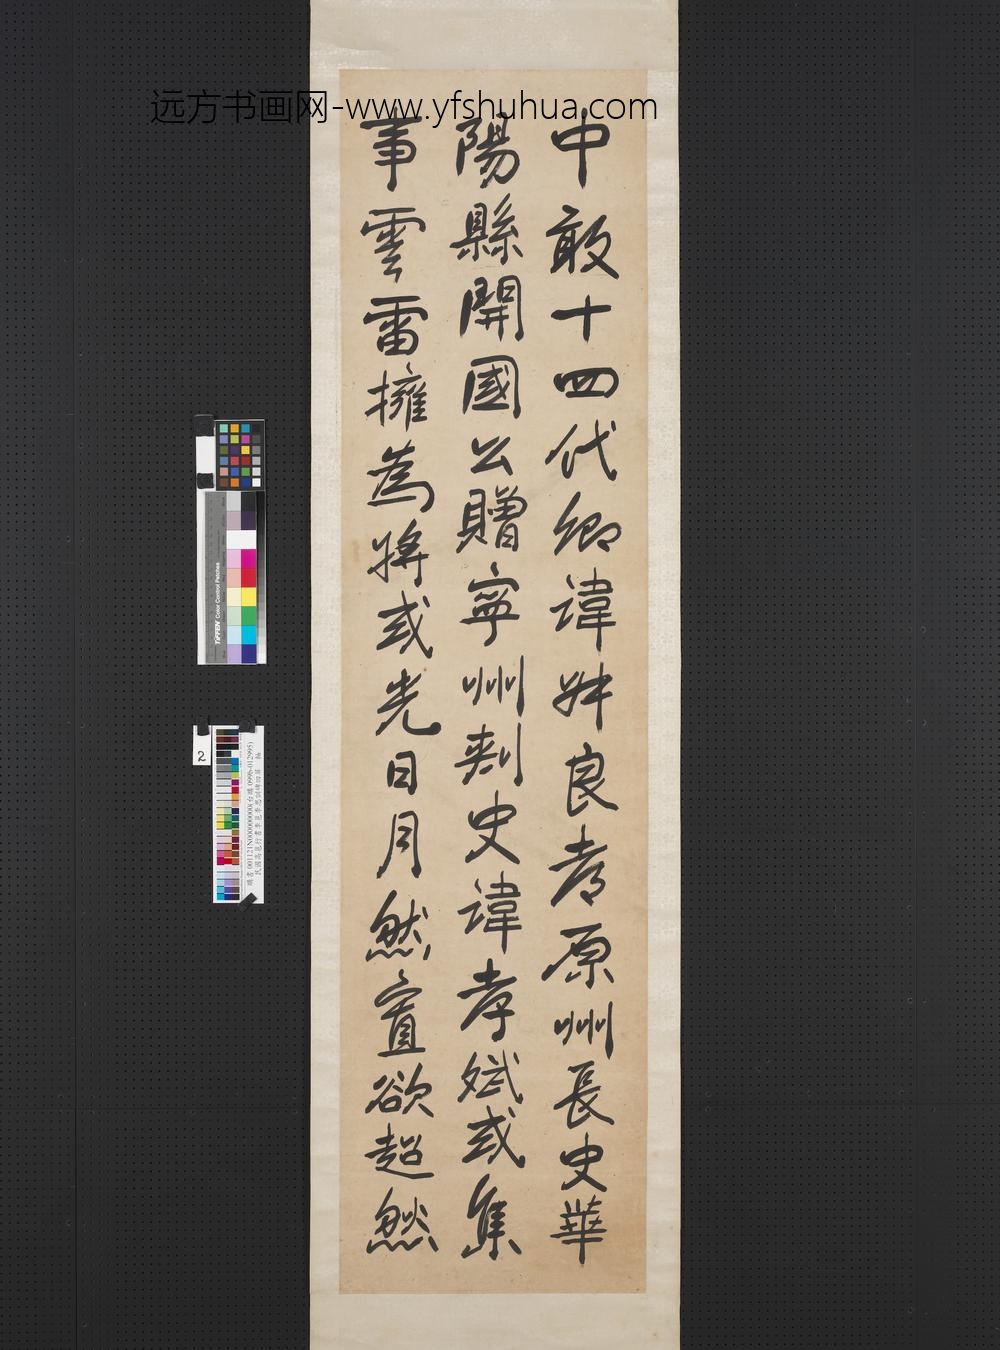 远方书画网-www.yfshuhua.com
中敢十四代卿諱妹良考原州長史華
陽縣開國公贈寧州刺史諱孝斌或集
事雲雷擁為將或光日月然宣欲超然
TIFFEN Color Control Patches
2